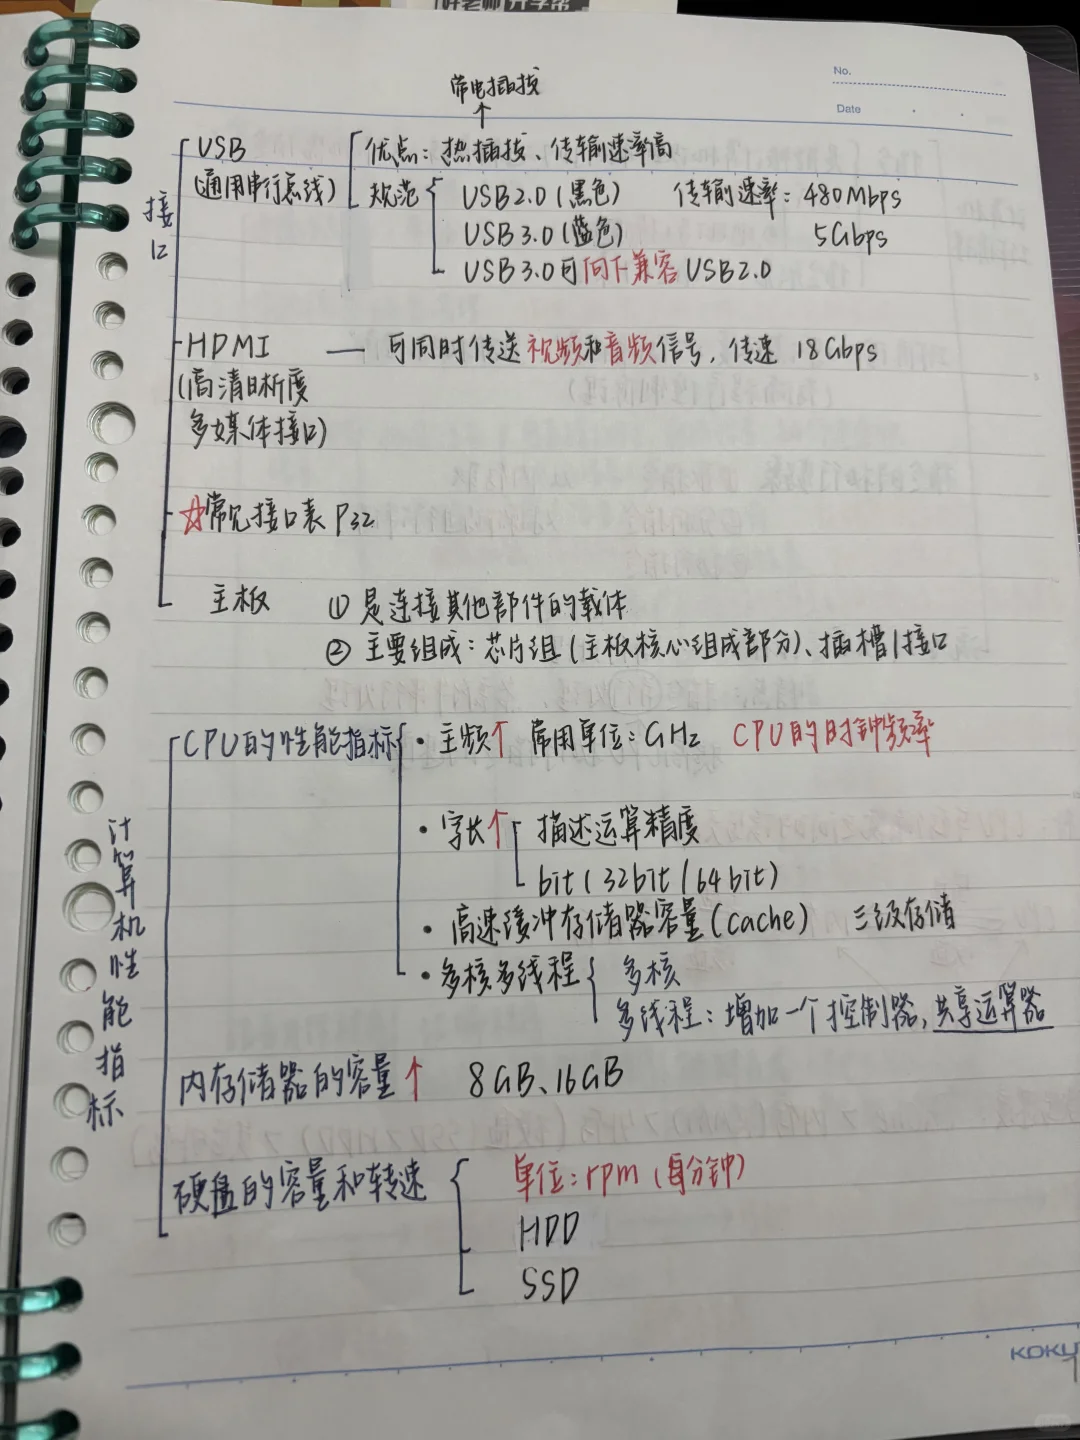 好老师 升学帮
No.
Date
带电插拔
↑
接口
USB
(通用串行总线)
优点：热插拔、传输速率高
规范
USB2.0(黑色) 传输速率：480Mbps
USB3.0(蓝色) 5Gbps
USB3.0可向下兼容USB2.0
HDMI — 可同时传送视频和音频信号，传速 18Gbps
(高清晰度
多媒体接口)
☆常见接口表 P32
主板 ① 是连接其他部件的载体
② 主要组成：芯片组(主板核心组成部分)、插槽/接口
计算机性能指标
CPU的性能指标
· 主频↑ 常用单位：GHz CPU的时钟频率
· 字长↑ 描述运算精度
bit(32bit/64bit)
· 高速缓冲存储器容量(cache) 三级存储
· 多核多线程 多核
多线程：增加一个控制器，共享运算器
内存储器的容量↑ 8GB、16GB
硬盘的容量和转速 单位：rpm(每分钟)
HDD
SSD
KOKU